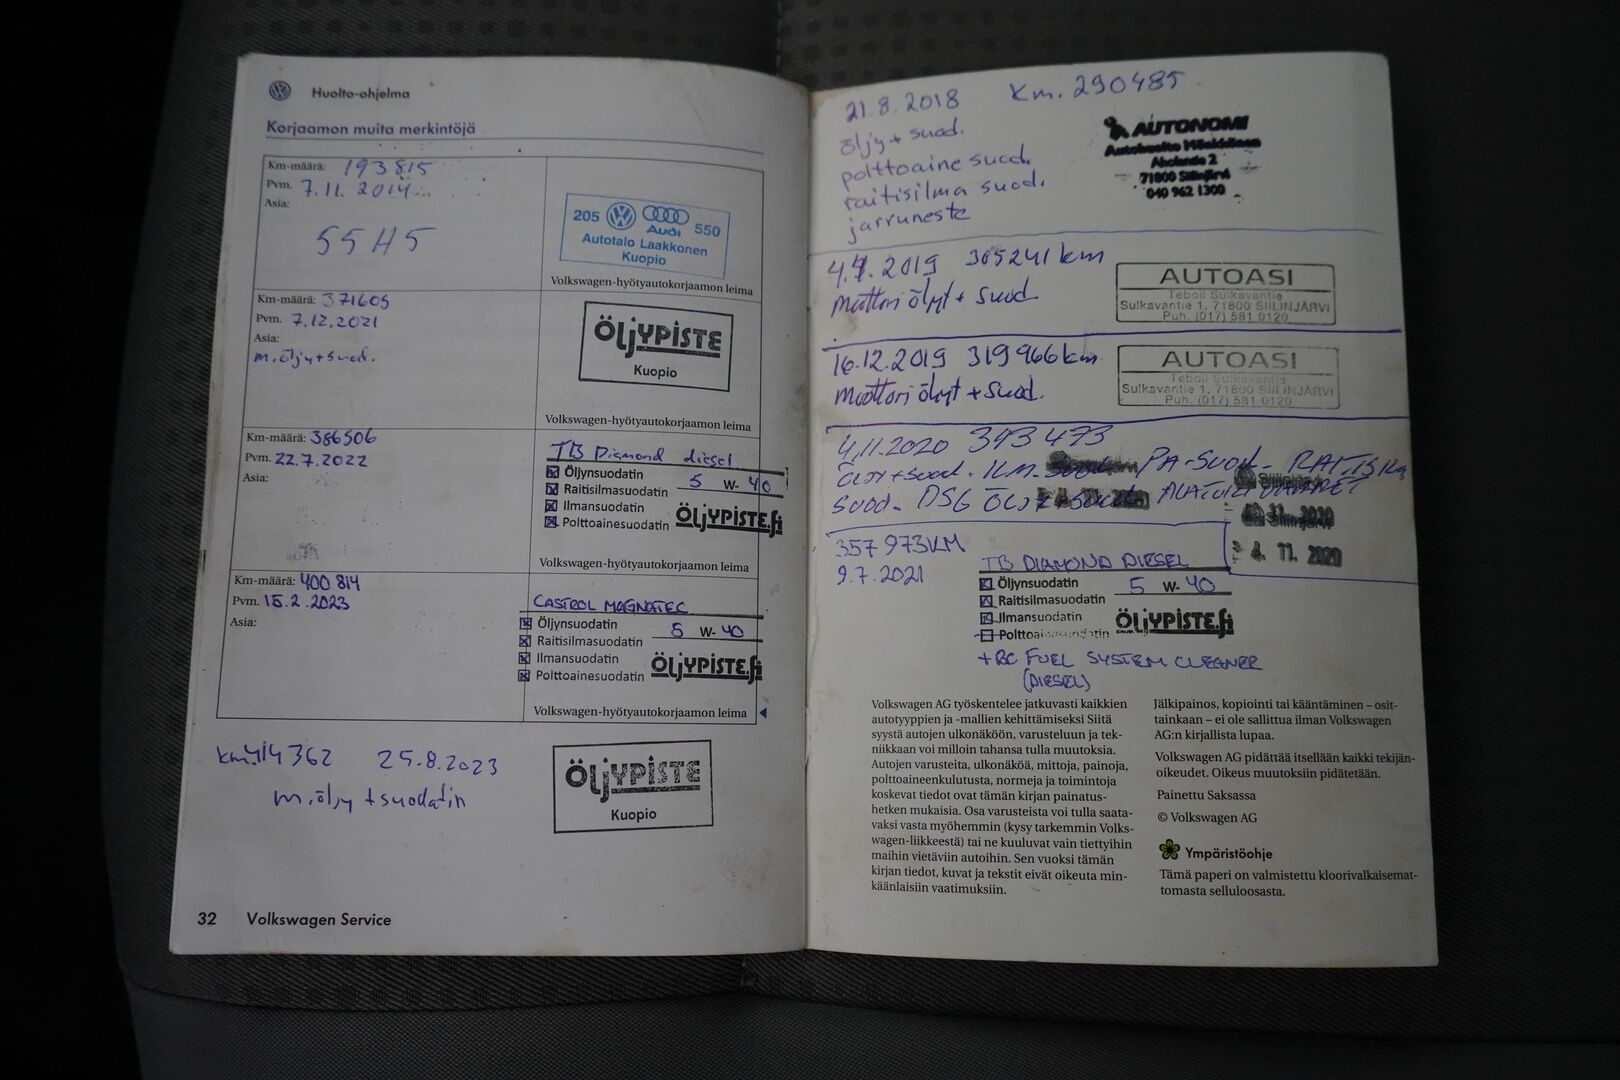 Huolto-ohjelma
Korjaamon muita merkintöjä
Km-määrä: 193815
Pvm. 7.11.2014
Asia:
55H5
205 Audi 550
Autotalo Laakkonen
Kuopio
Volkswagen-hyötyautokorjaamon leima
Km-määrä: 371605
Pvm. 7.12.2021
Asia:
m.öljy+suod.
ÖLJYPISTE
Kuopio
Volkswagen-hyötyautokorjaamon leima
Km-määrä: 386506
Pvm. 22.7.2022
Asia:
TB Diamond diesel
Öljynsuodatin 5 W- 40
Raitisilmasuodatin
Ilmansuodatin
Polttoainesuodatin
ÖLJYPISTE.fi
Volkswagen-hyötyautokorjaamon leima
Km-määrä: 400 814
Pvm. 15.2.2023
Asia:
CASTROL MAGNATEC
Öljynsuodatin 5 W- 40
Raitisilmasuodatin
Ilmansuodatin
Polttoainesuodatin
ÖLJYPISTE.fi
Volkswagen-hyötyautokorjaamon leima
km.414362 25.8.2023
m.öljy +suodatin
ÖLJYPISTE
Kuopio
32 Volkswagen Service
21.8.2018 Km. 290485
öljy + suod.
polttoaine suod.
raitisilma suod.
jarruneste
AUTONOMI
Autohuolto Mönkkönen
Aholantie 2
71800 Siilinjärvi
040 962 1300
4.7.2019 305241 km
Moottori öljyt + suod.
AUTOASI
Teboil Sulkavantie
Sulkavantie 1, 71800 SIILINJÄRVI
Puh. (017) 581 0120
16.12.2019 319966km
Moottori öljyt + suod.
AUTOASI
Teboil Sulkavantie
Sulkavantie 1, 71800 SIILINJÄRVI
Puh. (017) 581 0120
4.11.2020 343 473
ÖLJY+SUOD. ILM. PA-SUOD. RAITISILMA
SUOD. DSG ÖLJY+SUOD.
4. 11. 2020
357 973KM
9.7.2021
TB DIAMOND DIESEL
Öljynsuodatin 5 W- 40
Raitisilmasuodatin
Ilmansuodatin
Polttoainesuodatin
ÖLJYPISTE.fi
+BC FUEL SYSTEM CLEANER
(DIESEL)
Volkswagen AG työskentelee jatkuvasti kaikkien
autotyyppien ja -mallien kehittämiseksi Siitä
syystä autojen ulkonäköön, varusteluun ja tek-
niikkaan voi milloin tahansa tulla muutoksia.
Autojen varusteita, ulkonäköä, mittoja, painoja,
polttoaineenkulutusta, normeja ja toimintoja
koskevat tiedot ovat tämän kirjan painatus-
hetken mukaisia. Osa varusteista voi tulla saata-
vaksi vasta myöhemmin (kysy tarkemmin Volks-
wagen-liikkeestä) tai ne kuuluvat vain tiettyihin
maihin vietäviin autoihin. Sen vuoksi tämän
kirjan tiedot, kuvat ja tekstit eivät oikeuta min-
käänlaisiin vaatimuksiin.
Jälkipainos, kopiointi tai kääntäminen – osit-
tainkaan – ei ole sallittua ilman Volkswagen
AG:n kirjallista lupaa.
Volkswagen AG pidättää itsellään kaikki tekijän-
oikeudet. Oikeus muutoksiin pidätetään.
Painettu Saksassa
© Volkswagen AG
Ympäristöohje
Tämä paperi on valmistettu kloorivalkaisemat-
tomasta selluloosasta.